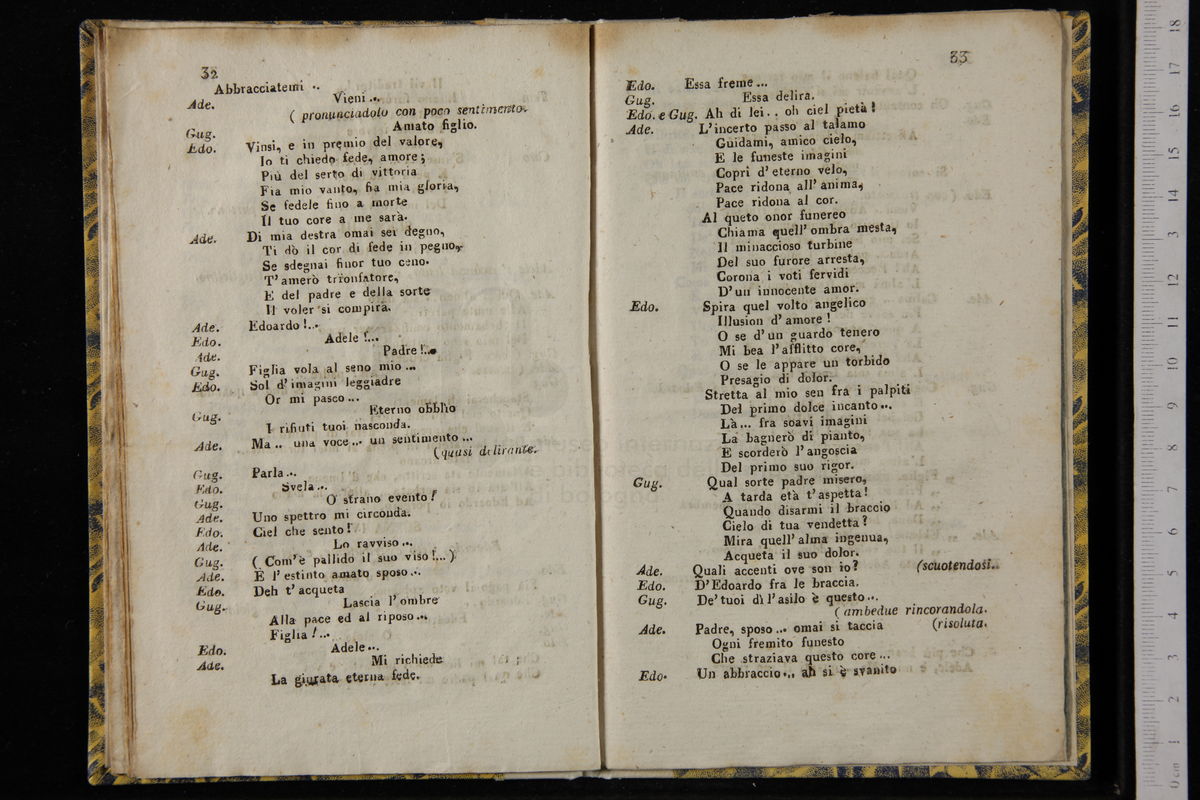 32
Abbracciatemi ..
Ade. Vieni ...
( pronunciadolo con poco sentimento.
Gug. Amato figlio.
Edo. Vinsi, e in premio del valore,
Io ti chiedo fede, amore;
Più del serto di vittoria
Fia mio vanto, fia mia gloria,
Se fedele fino a morte
Il tuo core a me sarà.
Ade. Di mia destra omai sei degno,
Ti dò il cor di fede in pegno,
Se sdegnai finor tuo ceno.
T'amerò trionfatore,
E del padre e della sorte
Il voler si compirà.
Ade. Edoardo !...
Edo. Adele !...
Ade. Padre !...
Gug. Figlia vola al seno mio ...
Edo. Sol d'imagini leggiadre
Or mi pasco ...
Gug. Eterno obblìo
I rifiuti tuoi nasconda.
Ade. Ma .. una voce ... un sentimento ...
(quasi delirante.
Gug. Parla ...
Edo. Svela ...
Gug. O strano evento!
Ade. Uno spettro mi circonda.
Edo. Ciel che sento!
Ade. Lo ravviso ...
Gug. ( Com'è pallido il suo viso !... )
Ade. E l'estinto amato sposo ..
Edo. Deh t'acqueta
Gug. Lascia l'ombre
Alla pace ed al riposo ...
Figlia ! ...
Edo. Adele ...
Ade. Mi richiede
La giurata eterna fede.
33
Edo. Essa freme ...
Gug. Essa delira.
Edo. e Gug. Ah di lei .. oh ciel pietà !
Ade. L'incerto passo al talamo
Guidami, amico cielo,
E le funeste imagini
Copri d'eterno velo,
Pace ridona all'anima,
Pace ridona al cor.
Al queto onor funereo
Chiama quell'ombra mesta,
Il minaccioso turbine
Del suo furore arresta,
Corona i voti fervidi
D'un innocente amor.
Edo. Spira quel volto angelico
Illusion d'amore !
O se d'un guardo tenero
Mi bea l'afflitto core,
O se le appare un torbido
Presagio di dolor.
Stretta al mio sen fra i palpiti
Del primo dolce incanto ...
Là ... fra soavi imagini
La bagnerò di pianto,
E scorderò l'angoscia
Del primo suo rigor.
Gug. Qual sorte padre misero,
A tarda età t'aspetta!
Quando disarmi il braccio
Cielo di tua vendetta?
Mira quell'alma ingenua,
Acqueta il suo dolor.
Ade. Quali accenti ove son io? (scuotendosi..
Edo. D'Edoardo fra le braccia.
Gug. De'tuoi dì l'asilo è questo ...
( ambedue rincorandola.
Ade. Padre, sposo ... omai si taccia (risoluta.
Ogni fremito funesto
Che straziava questo core ...
Edo. Un abbraccio ... ah si è svanito